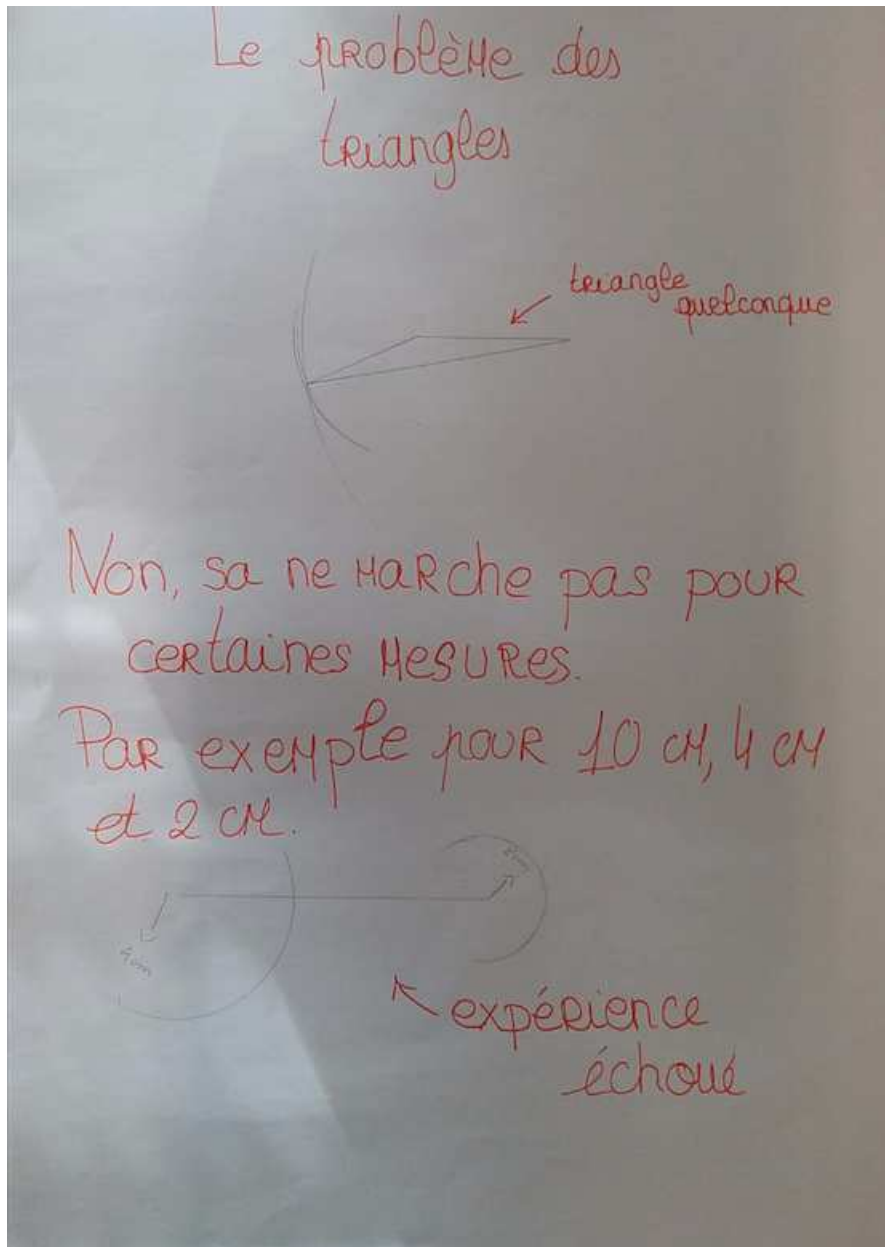 Le problème des
triangles
triangle
quelconque
Non, sa ne marche pas pour
certaines mesures.
Par exemple pour 10 cm, 4 cm
et 2 cm.
2cm
4cm
expérience
échoué